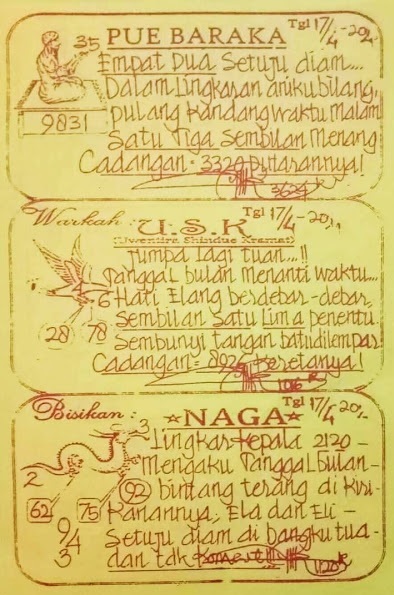 35
PUE BARAKA
Tgl 17/4-20
9831
Empat Dua Setuju diam...
Dalam Lingkaran aniku bilang,
pulang kandang waktu malam
Satu Tiga Sembilan Menang
Cadangan. 3320 putarannya!
Warkah:
U.S.K
Tgl 17/4-20
(Uwentira Shindue Kramat)
Jumpa lagi tuan...!!
Tanggal bulan menanti waktu...
6
Hati Elang berdebar-debar,
Sembilan Satu Lima penentu
28 78
Sembunyi tangan batu dilempar
Cadangan= 8925 Beretanya!
Bisikan:
NAGA
Tgl 17/4-20
3
Lingkar kepala 2120-
Mengaku Tanggal bulan-
2
92
bintang terang di kiri-
62 75
Kanannya, Ela dan Eli-
9/4
3
Setuju diam di bangku tua-
dan tdk Koment!!